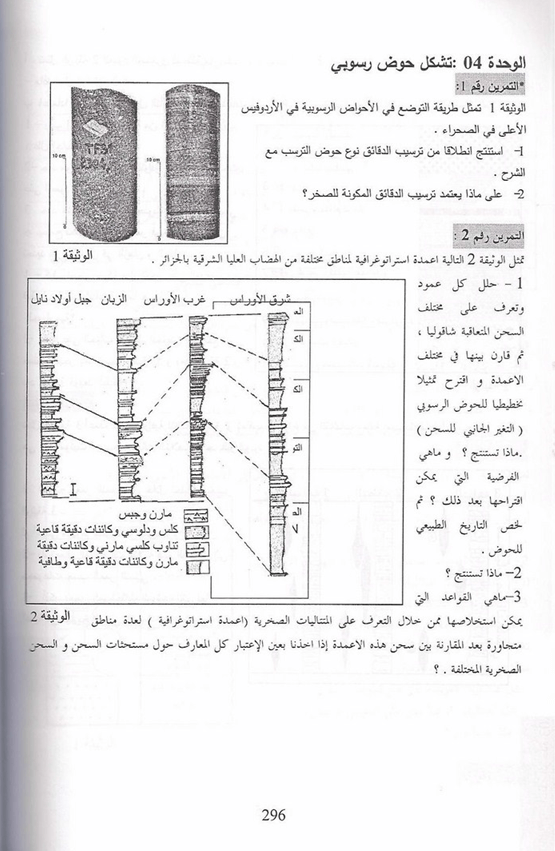 الوحدة 04 :تشكل حوض رسوبي
*التمرين رقم 1:
الوثيقة 1 تمثل طريقة التوضع في الأحواض الرسوبية في الأردوفيس
الأعلى في الصحراء .
1- استنتج انطلاقا من ترسيب الدقائق نوع حوض الترسب مع
الشرح .
2- على ماذا يعتمد ترسيب الدقائق المكونة للصخر؟
10 cm
10 cm
الوثيقة 1
التمرين رقم 2 :
تمثل الوثيقة 2 التالية اعمدة استراتوغرافية لمناطق مختلفة من الهضاب العليا الشرقية بالجزائر .
1 - حلل كل عمود
وتعرف على مختلف
السحن المتعاقبة شاقوليا ،
ثم قارن بينها في مختلف
الاعمدة و اقترح تمثيلا
تخطيطيا للحوض الرسوبي
( التغير الجانبي للسحن )
.ماذا تستنتج ؟ و ماهي
الفرضية التي يمكن
اقتراحها بعد ذلك ؟ ثم
لخص التاريخ الطبيعي
للحوض .
2- ماذا تستنتج ؟
3-ماهي القواعد التي
شرق الأوراس غرب الأوراس الزيبان جبل أولاد نايل
مارن وجبس
كلس ودلوسي وكائنات دقيقة قاعية
تناوب كلسي مارني وكائنات دقيقة
مارن وكائنات دقيقة قاعية وطافية
الوثيقة 2
يمكن استخلاصها ممن خلال التعرف على المتتاليات الصخرية (اعمدة استراتوغرافية ) لعدة مناطق
متجاورة بعد المقارنة بين سحن هذه الاعمدة إذا اخذنا بعين الإعتبار كل المعارف حول مستحثات السحن و السحن
الصخرية المختلفة . ؟
296